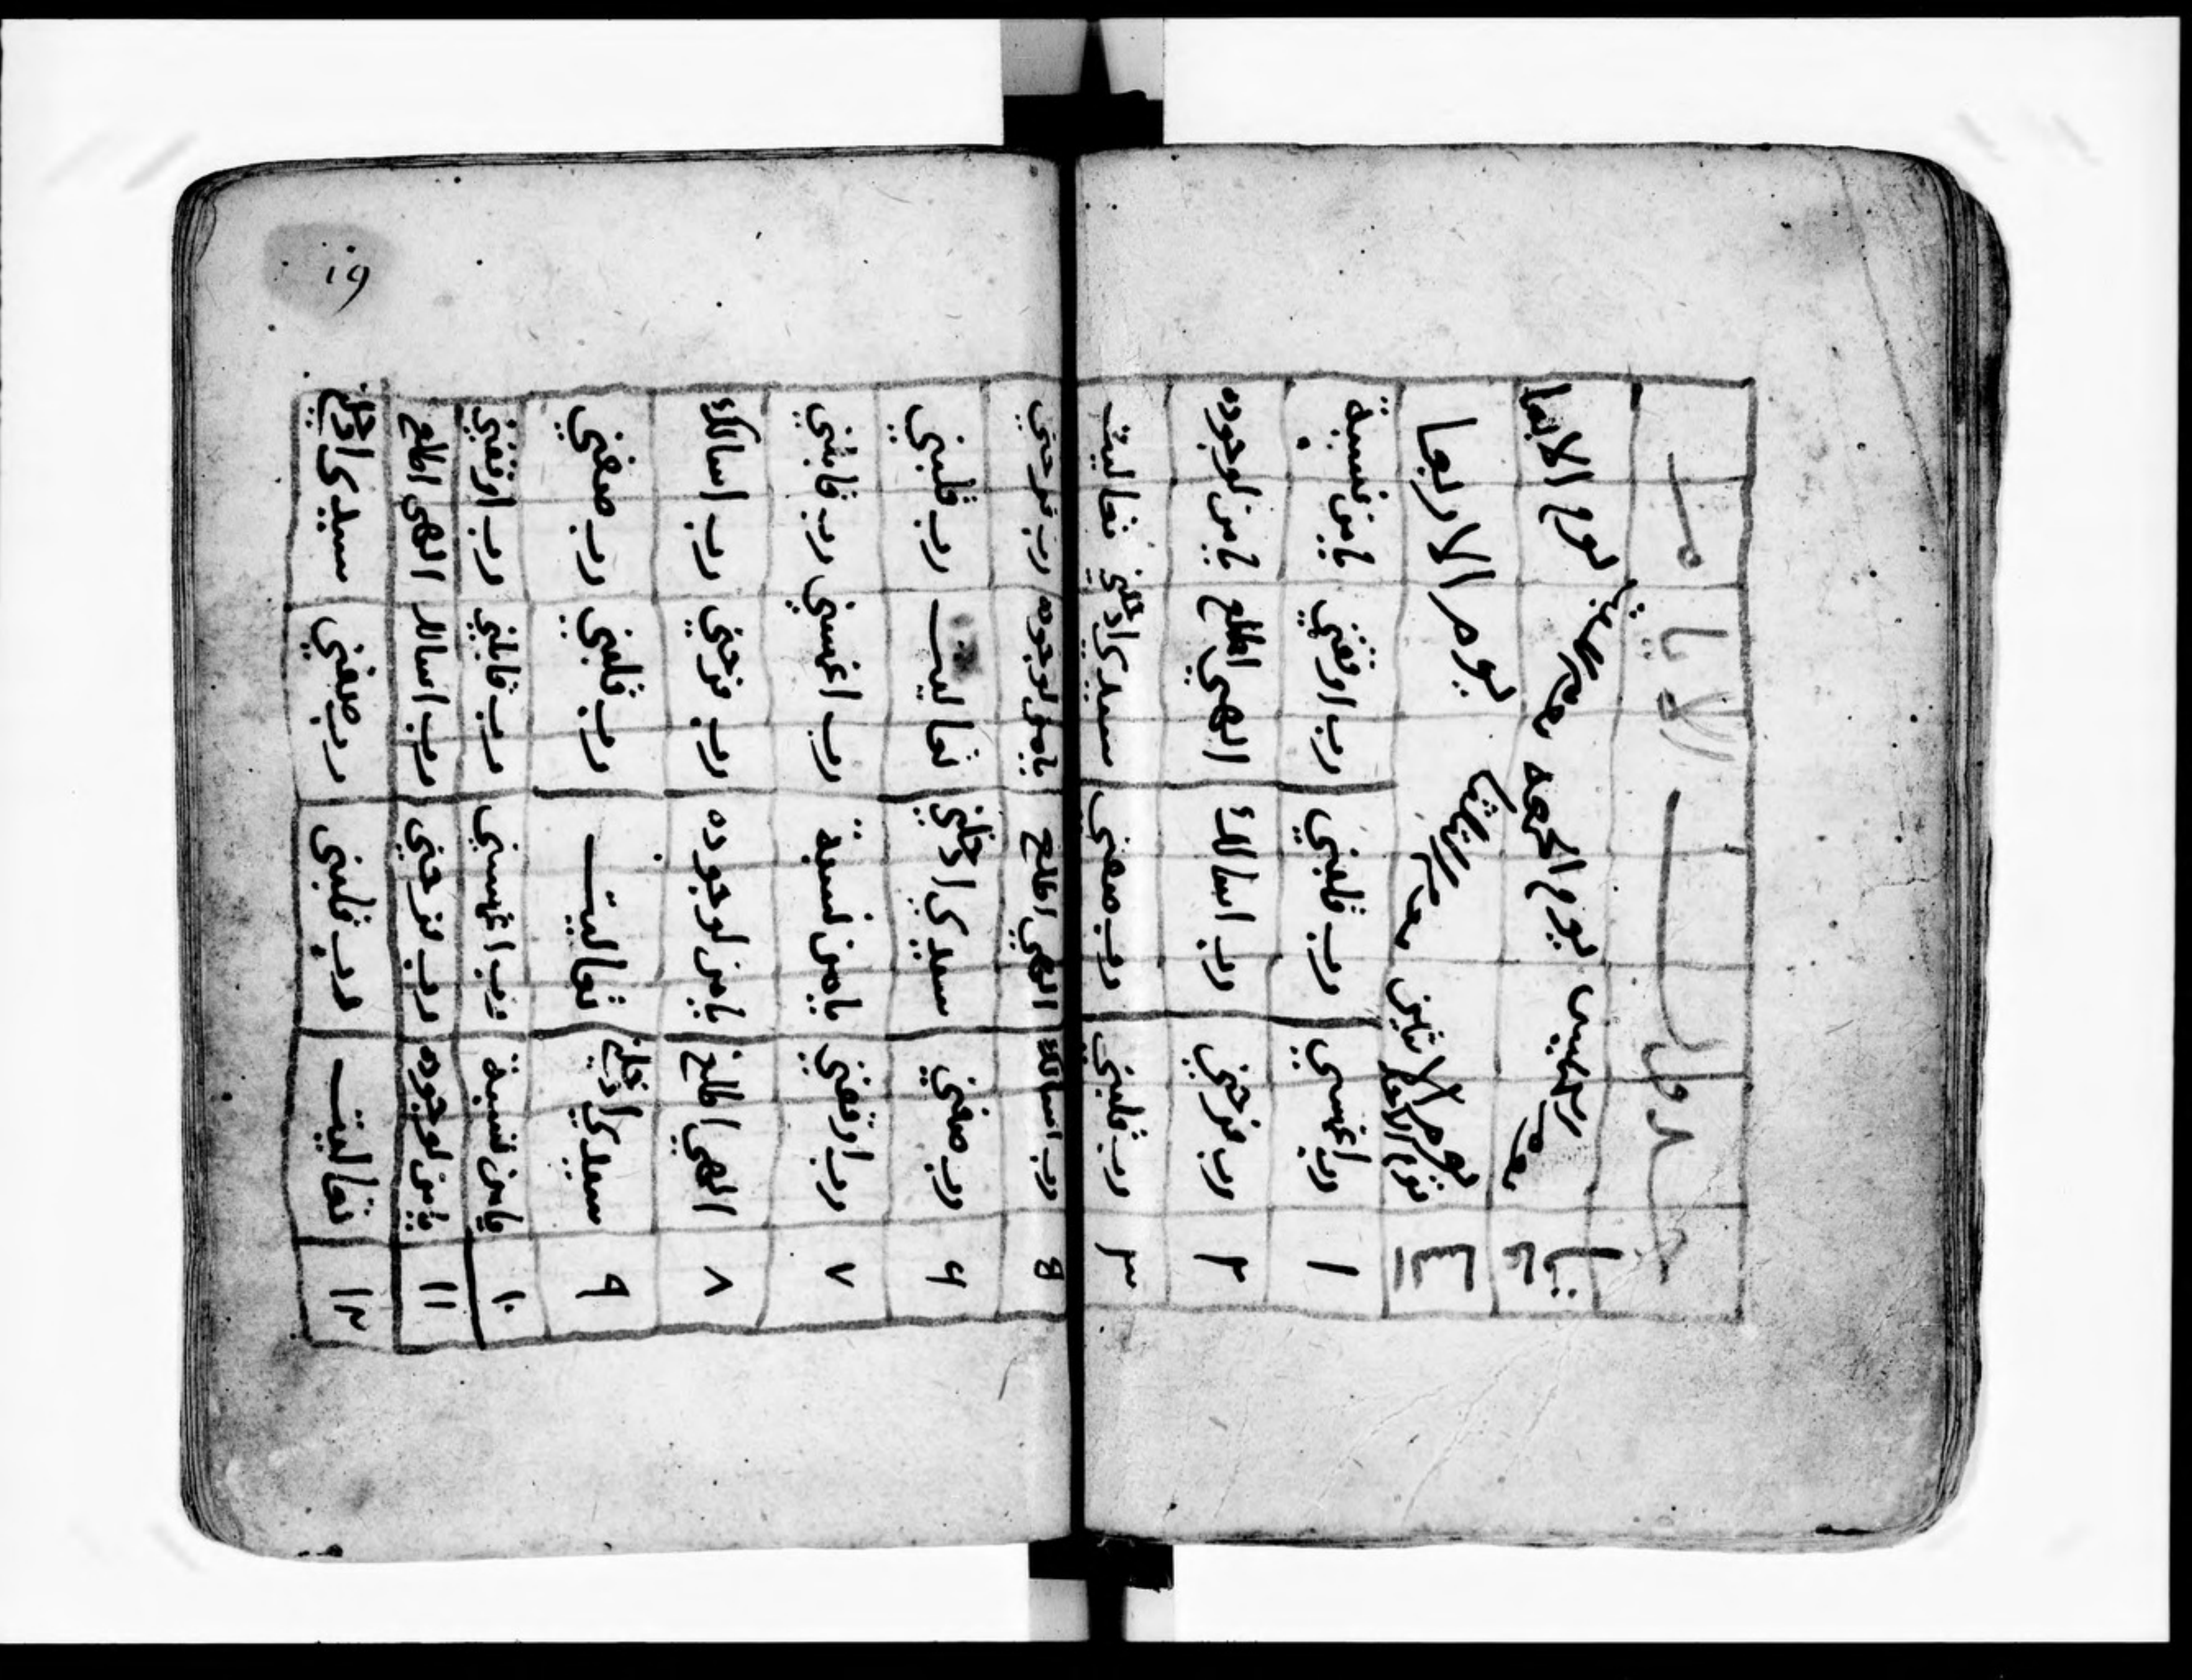 19
جدول الايام
الساعات
يوم الخميس يوم الجمعه
يوم الاحد يوم الاثنين يوم الثلثا يوم الاربعا
١ رب اغمسني رب قلبني رب اوقفني يا من نسبة
٢ رب فرحني رب اسالك الهي اطلع يا من لوجوده
٣ رب قلبني رب صفني سيدي ادخلني تعاليت
رب اسالك الهي اطلع يا من لوجوده رب فرحني
۶ رب صفني سيدي ادخلني تعاليت رب قلبني
٧ رب اوقفني يا من نسبة رب اغمسني رب قابلني
٨ الهي اطلع يا من لوجوده رب فرحني رب اسالك
٩ سيدي ادخلني تعاليت رب قلبني رب صفني
١٠ يا من نسبة رب اغمسني رب قابلني رب اوقفني
١١ يا من لوجوده رب فرحني رب اسالك الهي اطلع
١٢ تعاليت رب قلبني رب صفني سيدي ادخلني